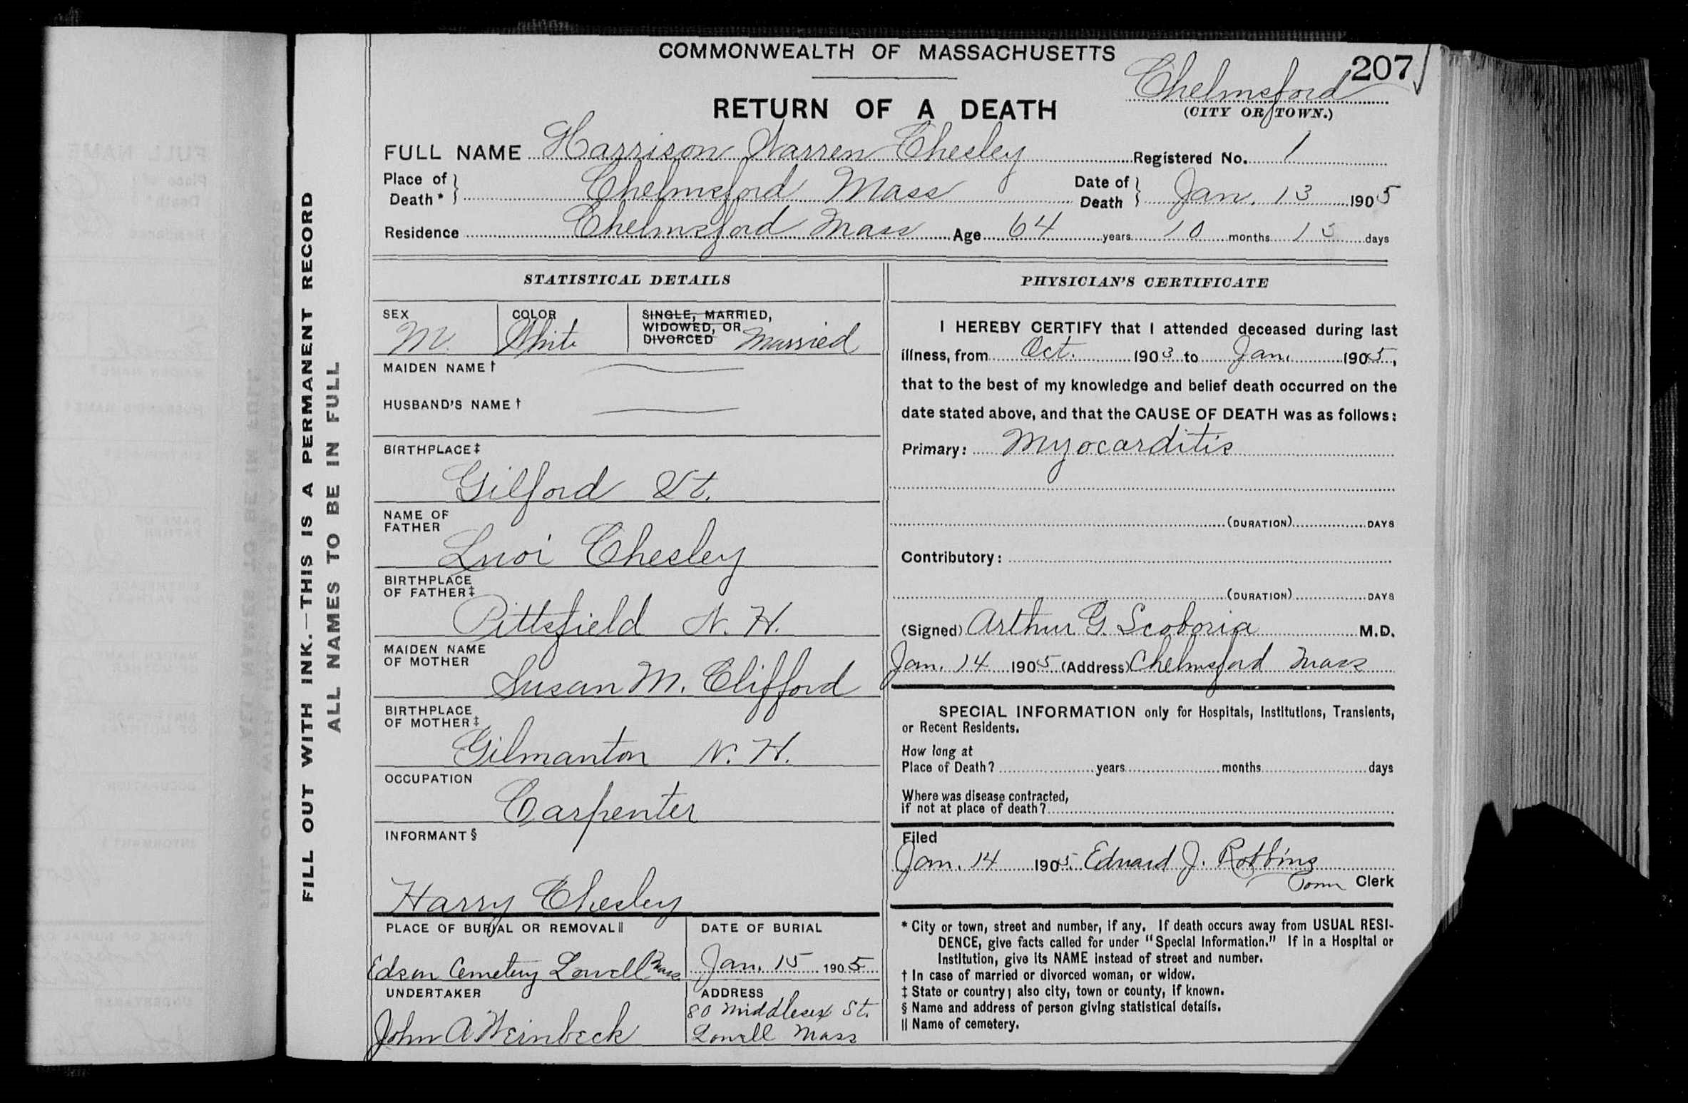 COMMONWEALTH OF MASSACHUSETTS
207
RETURN OF A DEATH
Chelmsford
(CITY OR TOWN.)
FULL NAME Harrison Warren Chesley Registered No. 1
Place of Death * } Chelmsford Mass Date of Death } Jan. 13 1905
Residence Chelmsford Mass Age 64 years 10 months 15 days
FILL OUT WITH INK.—THIS IS A PERMANENT RECORD
ALL NAMES TO BE IN FULL
STATISTICAL DETAILS
SEX M.
COLOR White
SINGLE, MARRIED, WIDOWED, OR DIVORCED Married
MAIDEN NAME †
HUSBAND'S NAME †
BIRTHPLACE ‡
Gilford Vt.
NAME OF FATHER
Chesley
BIRTHPLACE OF FATHER ‡
Pittsfield N. H.
MAIDEN NAME OF MOTHER
Susan M. Clifford
BIRTHPLACE OF MOTHER ‡
Gilmanton N. H.
OCCUPATION
Carpenter
INFORMANT §
Harry Chesley
PLACE OF BURIAL OR REMOVAL ||
Edson Cemetery Lowell Mass
DATE OF BURIAL
Jan. 15 1905
UNDERTAKER
John A Weinbeck
ADDRESS
80 Middlesex St.
Lowell Mass
PHYSICIAN'S CERTIFICATE
I HEREBY CERTIFY that I attended deceased during last
illness, from Oct. 1903 to Jan. 1905,
that to the best of my knowledge and belief death occurred on the
date stated above, and that the CAUSE OF DEATH was as follows:
Primary: Myocarditis
(DURATION) DAYS
Contributory:
(DURATION) DAYS
(Signed) Arthur G. Scoboria M.D.
Jan. 14 1905 (Address) Chelmsford Mass
SPECIAL INFORMATION only for Hospitals, Institutions, Transients,
or Recent Residents.
How long at
Place of Death? years months days
Where was disease contracted,
if not at place of death?
Filed
Jan. 14 1905 Edward J. Robbins
Town Clerk
* City or town, street and number, if any. If death occurs away from USUAL RESI-
DENCE, give facts called for under "Special Information." If in a Hospital or
Institution, give its NAME instead of street and number.
† In case of married or divorced woman, or widow.
‡ State or country; also city, town or county, if known.
§ Name and address of person giving statistical details.
|| Name of cemetery.